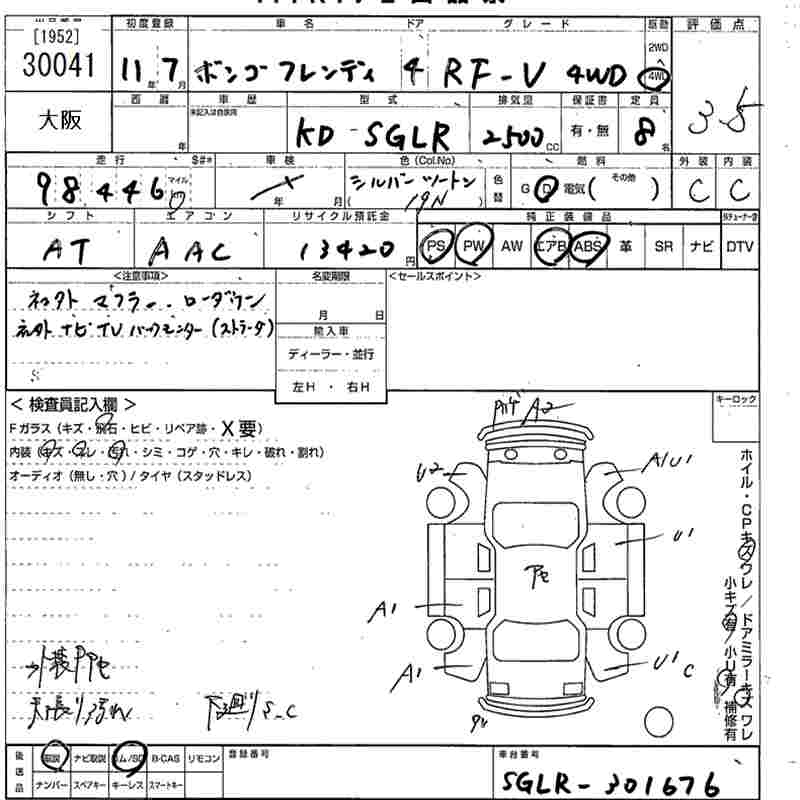 [1952]
30041
初度登録 車名 ドア グレード 駆動 評価点
11年7月 ボンゴフレンディ 4 RF-V 4WD 2WD 4WD 3.5
大阪
西暦 車歴 型式 排気量 保証書 定員
年 未記入は自家用 KD-SGLR 2500cc 有・無 8名
走行 S#* 車検 色(Col.No) 色替 燃料 外装 内装
98446 マイル km 年 月 シルバーツートン ( 19N ) G D 電気 ( その他 ) C C
シフト エアコン リサイクル預託金 純正装備品
AT AAC 13420円 PS PW AW エアB ABS 革 SR ナビ DTV
<注意事項> 名変期限 <セールスポイント>
ネットナビTV バックモニター (ストラーダ)
月 日
輸入車
ディーラー・並行
左H・右H
< 検査員記入欄 > キーロック
Fガラス (キズ・飛石・ヒビ・リペア跡・X要)
内装 (キズ・スレ・汚れ・シミ・コゲ・穴・キレ・破れ・割れ)
オーディオ (無し・穴) / タイヤ (スタッドレス)
A2
U2
A1U1
U1
A1
A1
U1
C
ホイル・CPキズワレ / ドアミラーキズワレ
小キズ有 / 小U有 補修有
外装
下廻りS-C
後送品 取説 ナビ取説 B-CAS リモコン 登録番号 車台番号
ナンバー スペアキー キーレス スマートキー SGLR-301676